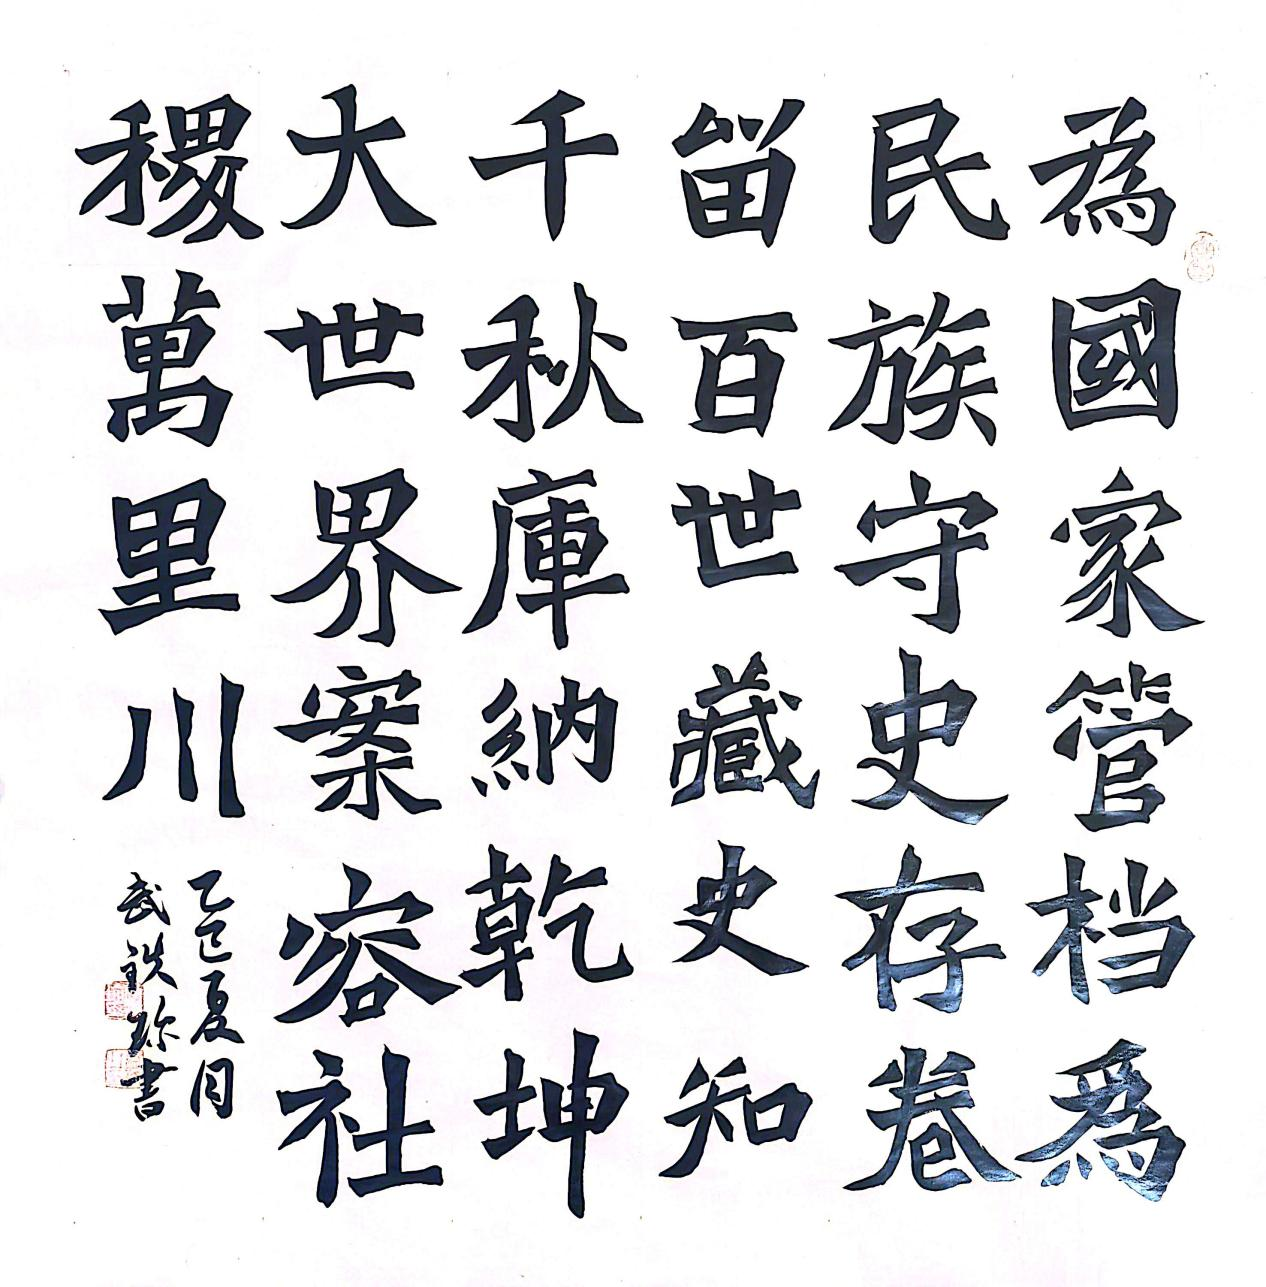 為國家管档爲
民族守史存卷
畄百世藏史知
千秋庫納乾坤
大世界案容社
稷萬里川
乙巳夏月
武鉄珍書